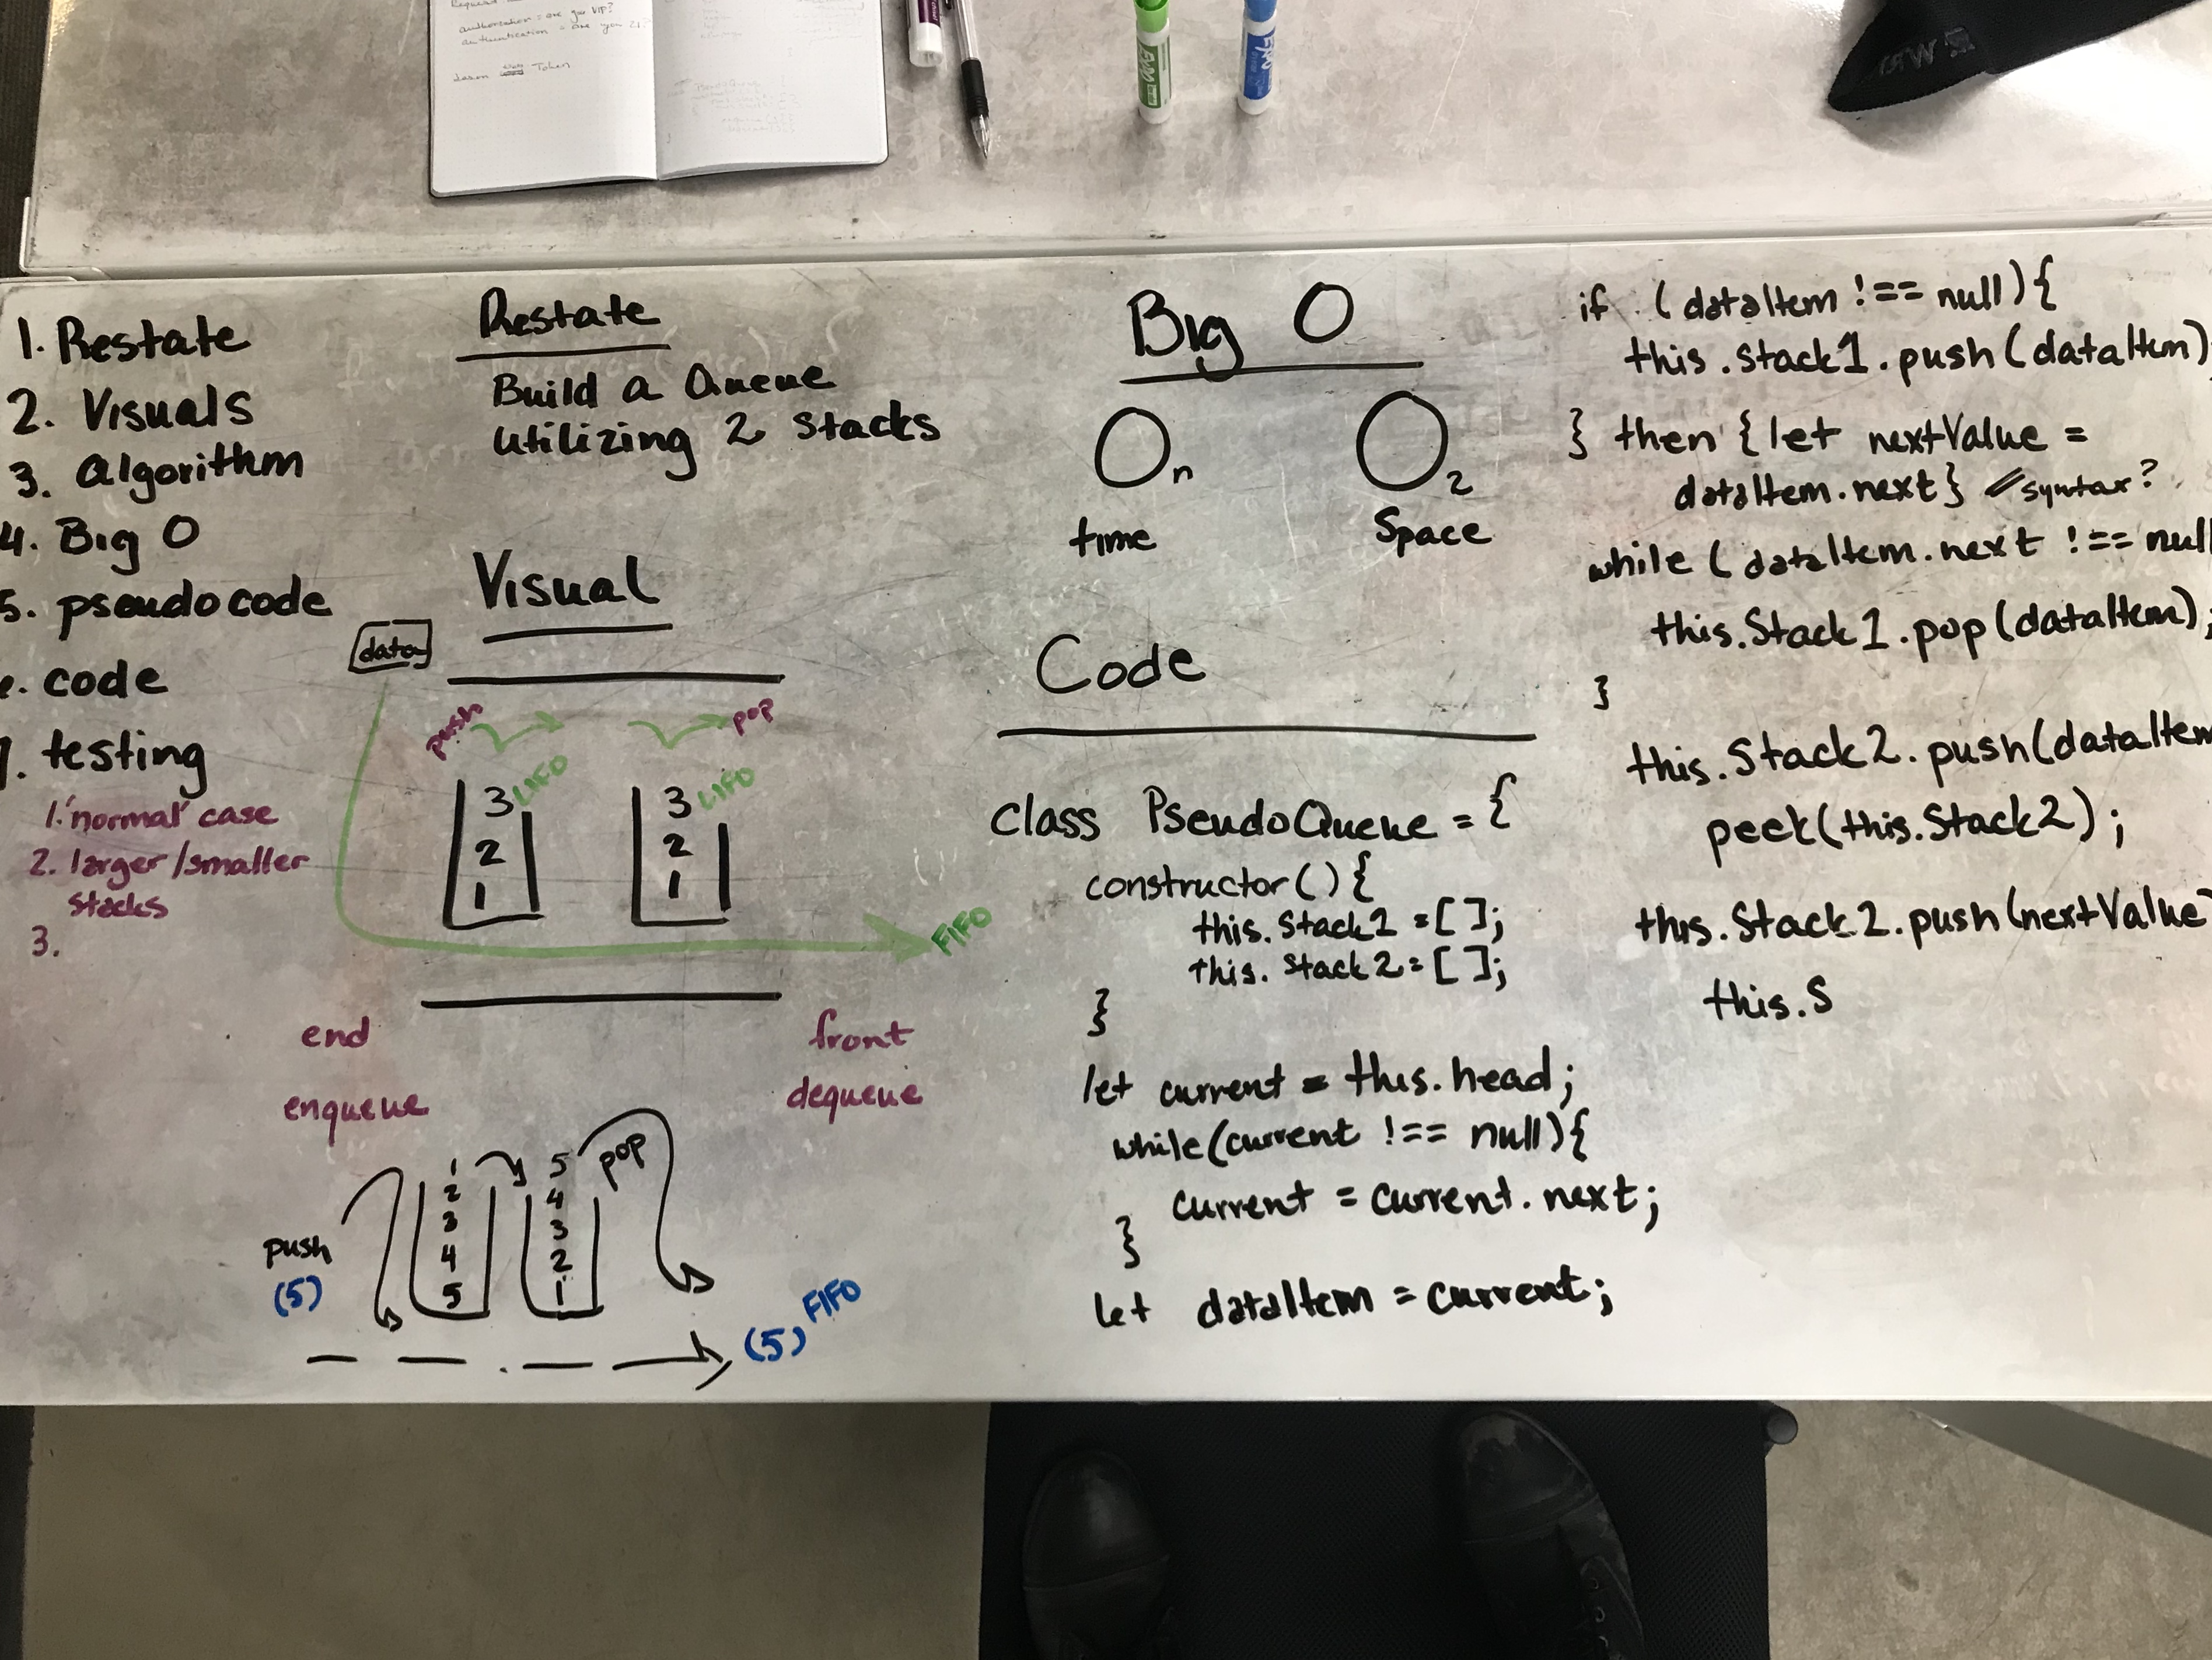 authorization = are you VIP?
authentication = are you 21?
Token
EXPO
EXPO
1. Restate
2. Visuals
3. algorithm
4. Big O
5. pseudocode
code
testing
1. 'normal' case
2. larger/smaller
stacks
3.
Restate
Build a Queue
utilizing 2 stacks
Visual
data
push
pop
3 LIFO
2
1
3 LIFO
2
1
FIFO
end
front
enqueue
dequeue
push
(5)
1
2
3
4
5
5
4
3
2
1
pop
(5) FIFO
Big O
On
O2
time
Space
Code
class PseudoQueue = {
constructor() {
this.Stack1 = [];
this.Stack2 = [];
}
let current = this.head;
while(current !== null){
current = current.next;
}
let dataItem = current;
if (dataItem !== null){
this.stack1.push(dataItem)
} then {let nextValue =
dataItem.next} //syntax?
while (dataItem.next !== null
this.Stack1.pop(dataItem);
}
this.Stack2.push(dataItem
peek(this.Stack2);
this.Stack2.push(nextValue)
this.S